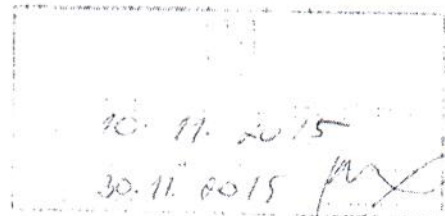 10. 11. 2015
30. 11. 2015